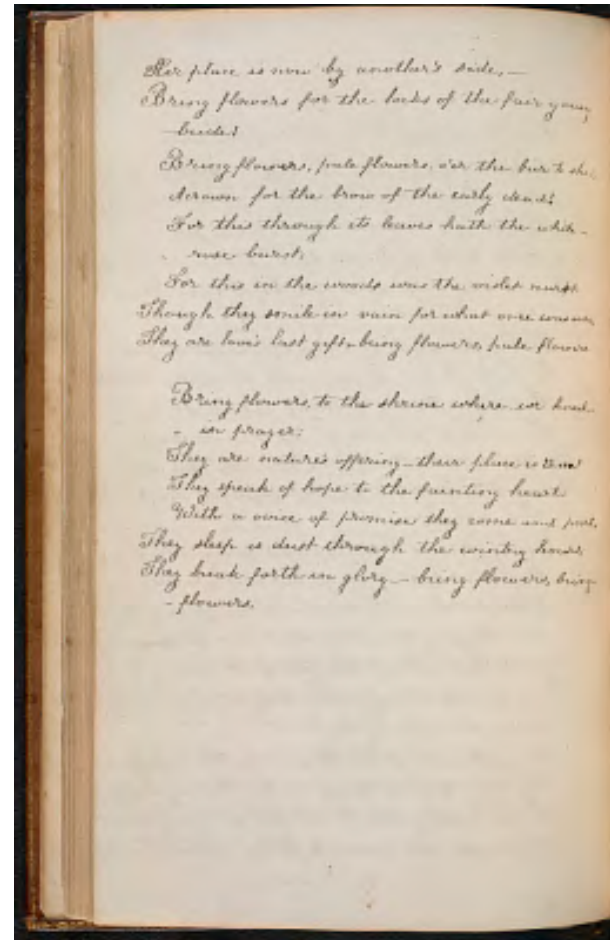 Her place is now by another's side,—
Bring flowers for the locks of the fair young
—bride!
Bring flowers, pale flowers, o'er the bier to she
A crown for the brow of the early dead!
For this through its leaves hath the white
rose burst,
For this in the woods was the violet nurst
Though they smile in vain for what once was
They are love's last gift—bring flowers, pale flowers
Bring flowers, to the shrine where we kneel
- in prayer:
They are nature's offering—their place is there
They speak of hope to the fainting heart
With a voice of promise they come and part,
They sleep in dust through the wintry hours
They break forth in glory—bring flowers, bring
- flowers.